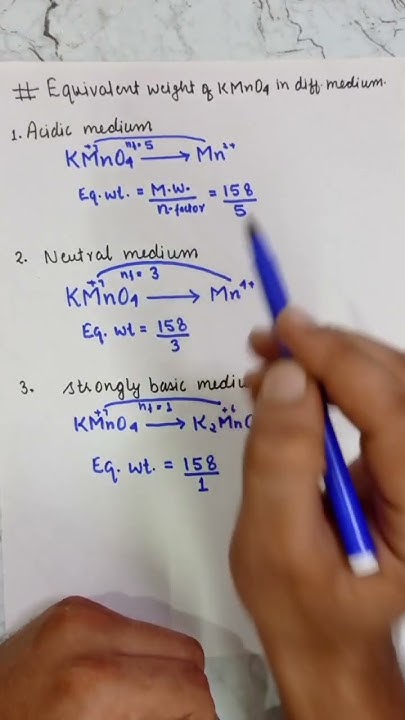 # Equivalent weight of KMnO4 in diff. medium.
1. Acidic medium
+7 nf=5
KMnO4 → Mn2+
Eq. wt. = M.W. / n-factor = 158 / 5
2. Neutral medium
+7 nf = 3
KMnO4 → Mn4+
Eq. wt = 158 / 3
3. strongly basic
+7 nf = 1 +6
KMnO4 → K2Mn
Eq. wt. = 158 / 1